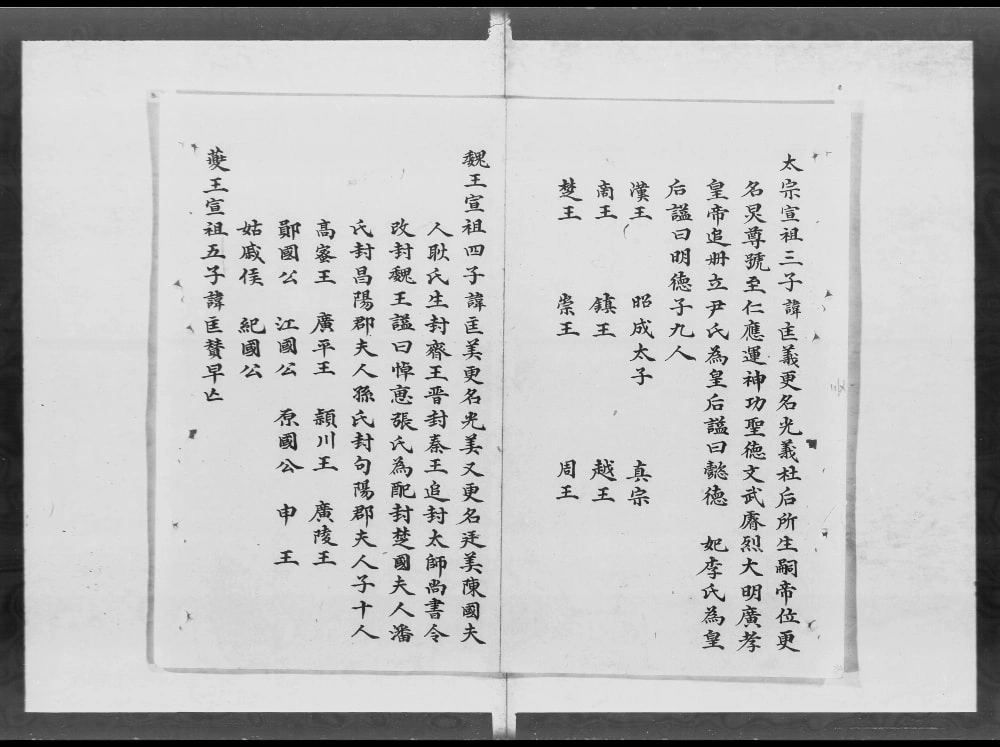 太宗宣祖三子諱匡義更名光義杜后所生嗣帝位更
名炅尊號至仁應運神功聖德文武睿烈大明廣孝
皇帝追冊立尹氏為皇后謚曰懿德 妃李氏為皇
后謚曰明德子九人
漢王 昭成太子 真宗
商王 鎮王 越王
楚王 崇王 周王
魏王宣祖四子諱匡美更名光美又更名廷美陳國夫
人耿氏生封齊王晋封秦王追封太師尚書令
改封魏王謚曰悼恵張氏為配封楚國夫人潘
氏封昌陽郡夫人孫氏封句陽郡夫人子十人
高密王 廣平王 潁川王 廣陵王
鄖國公 江國公 原國公 申王
姑臧侯 紀國公
夔王宣祖五子諱匡贊早亡